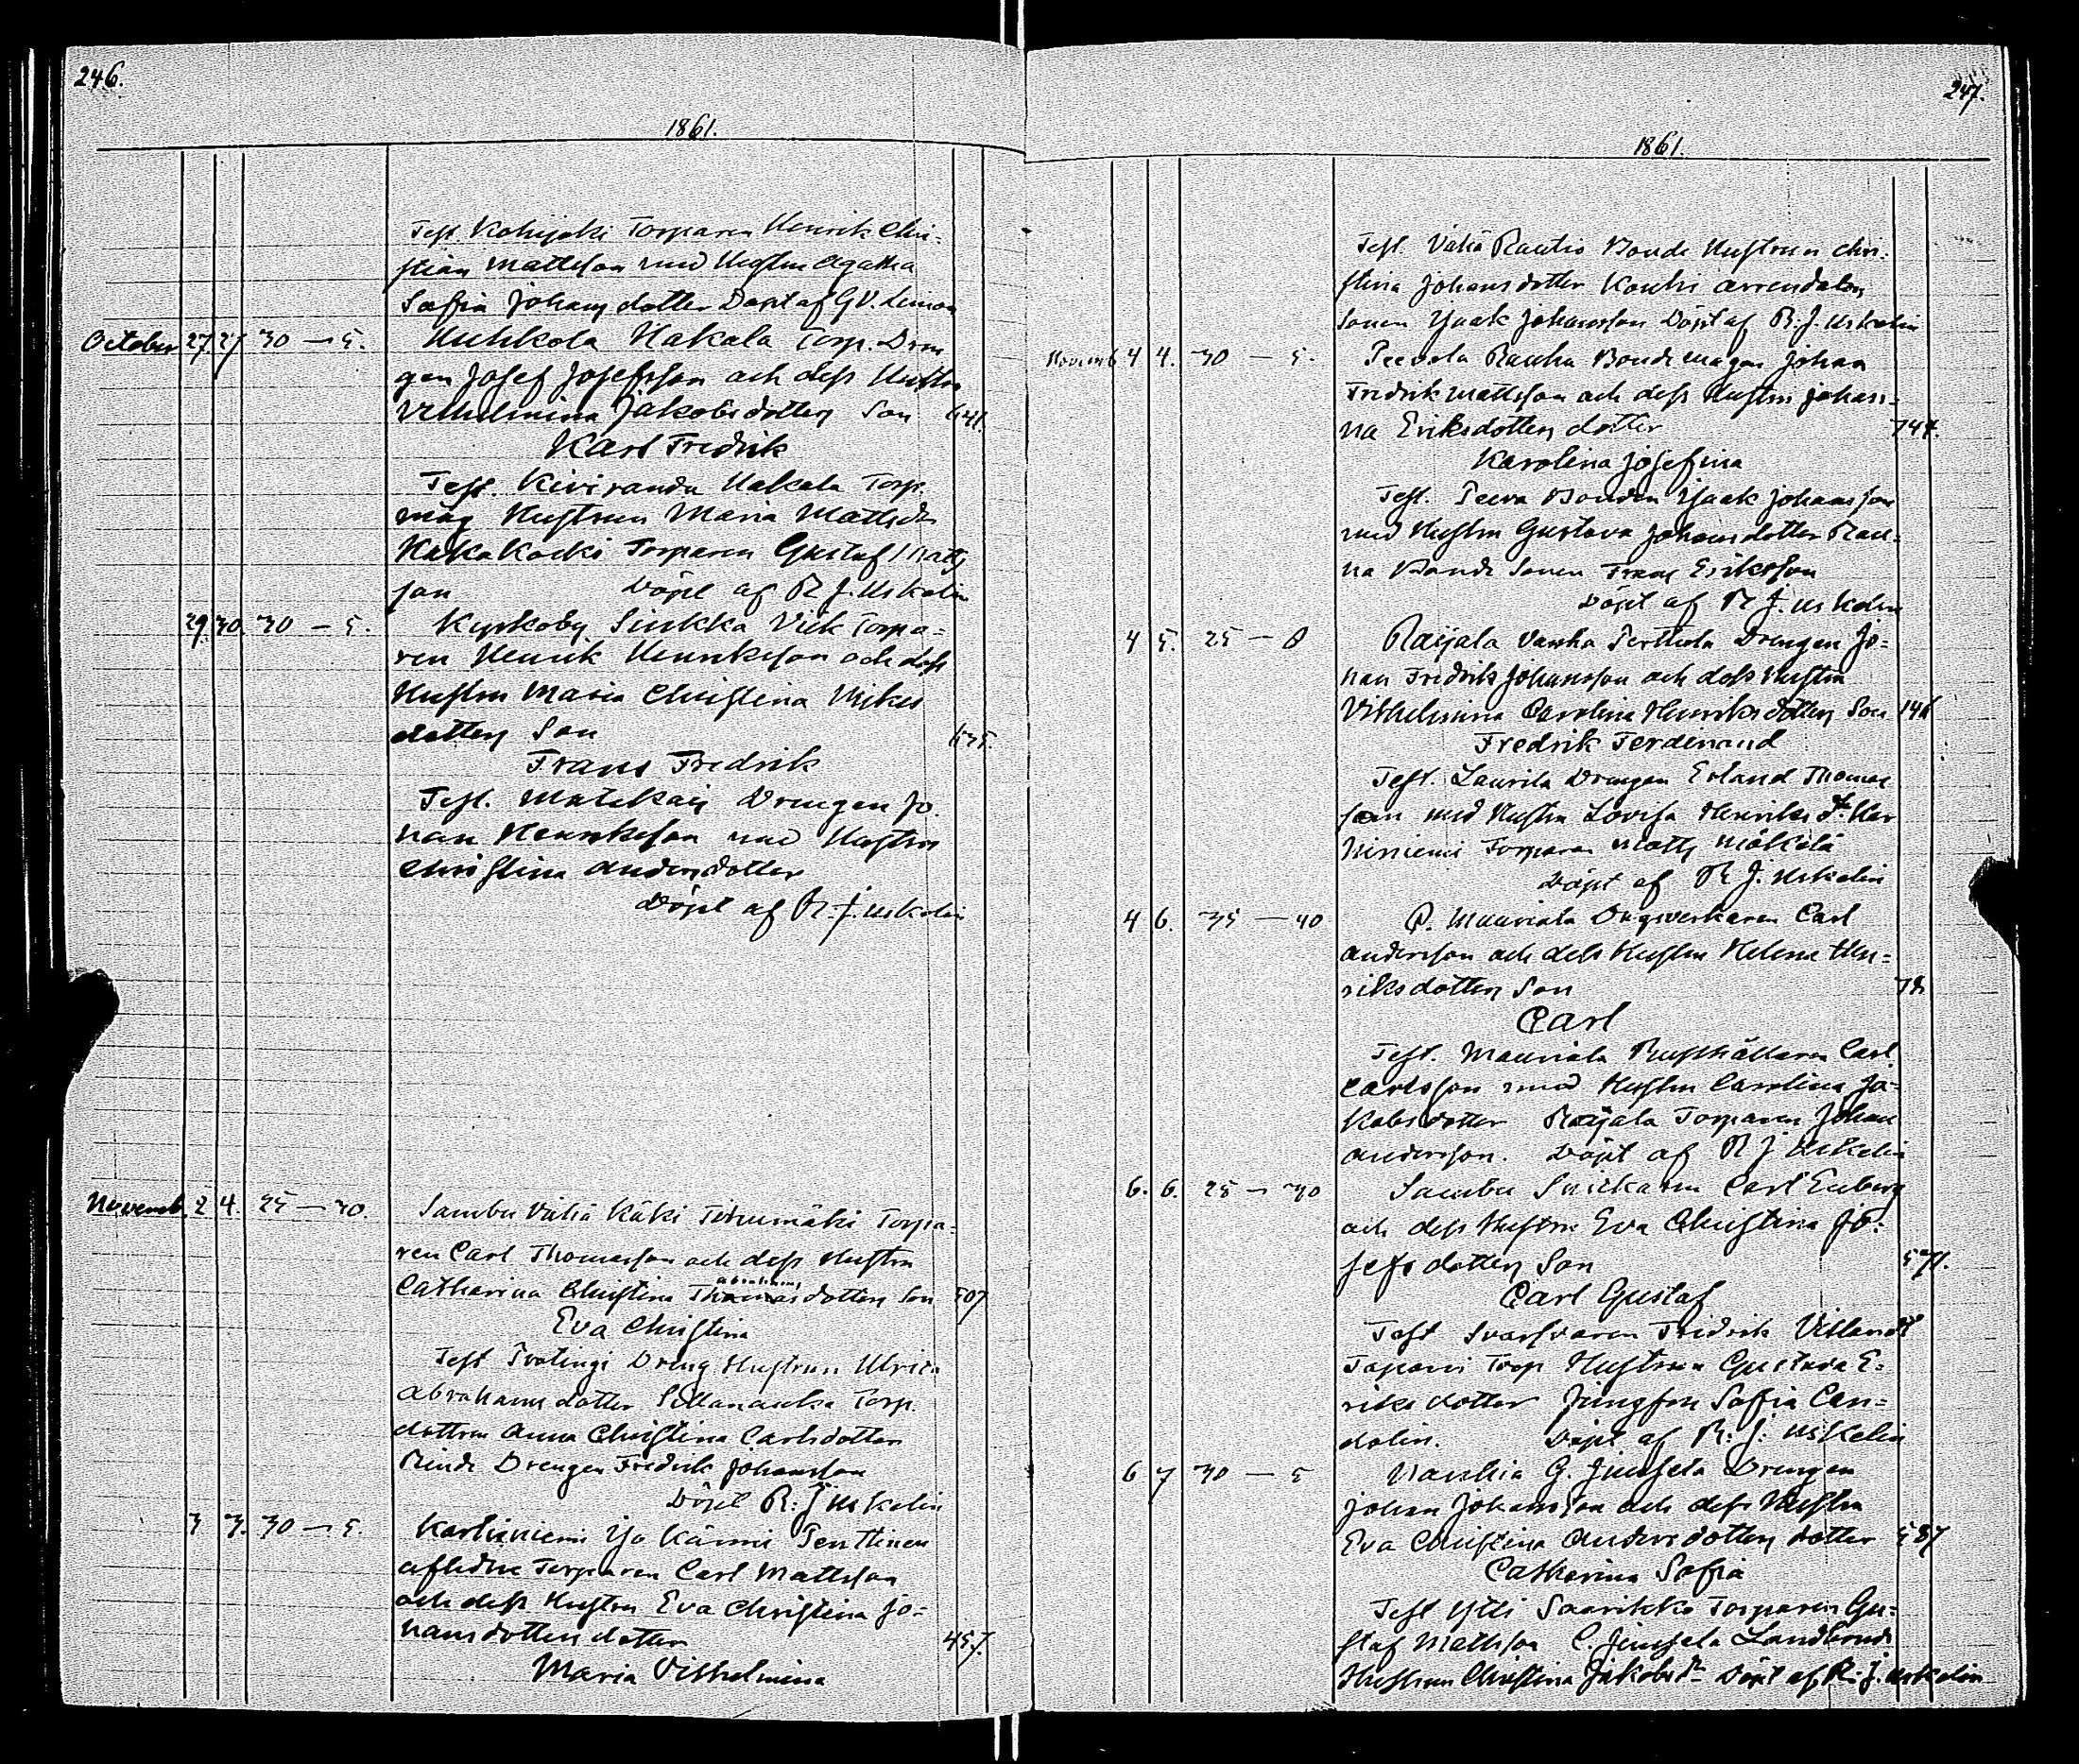 246.
1861.
Test. Kohijoki Torparen Henrik Chri-
stian Mattsson med Hustru Agatha
Sofia Johansdotter Döpt af G V. Limon
October 27. 27. 30 — 5. Huhkola Hakala Torp. Drän
gen Josef Josefsson och dess Hustru
Vilhelmina Jakobsdotters Son 641.
Karl Fredrik
Test. Kiviranda Hakala Torp.
måg Hustrun Maria Mattsdr
Torparen Gustaf Matts
son Döpt af R J. Uskelin
29. 30. 30 — 5. Kyrkoby Sinkka Vick Torpa-
ren Henrik Henriksson och dess
Hustru Maria Christina Mikels
dotters Son 635.
Frans Fredrik
Test. Drengen Jo
han Henriksson med Hustru
Christina Andersdotter
Döpt af R. J. Uskelin
Novemb. 2 4. 25 — 30. Sambu Vähä Käki Torpa-
ren Carl Thomasson och dess Hustru
Abrahams
Catharina Christina Thomasdotters Son 507
Eva Christina
Test Dreng Hustrun Ulrica
Abrahamsdotter Torp.
dottren Anna Christina Carlsdotter
Drengen Fredrik Johansson
Döpt R: J Uskelin
3 3. 30 — 5. Karhiniemi Iso Känni Penttinen
aflidne Torparen Carl Mattsson
och dess Hustru Eva Christina Jo-
hansdotters dotter 457.
Maria Vilhelmina
247.
1861.
Test. Vähä Rautio Bonde Hustrun Chri-
stina Johansdotter Kouhi arrendators
Sonen Isaak Johansson Döpt af R. J. Uskelin
Novemb 4 4. 30 — 5. Peevola Rauha Bondemågen Johan
Fredrik Mattsson och dess Hustru Johan-
na Eriksdotters dotter 744.
Karolina Josefina
Test. Bonden Isaak Johansson
med Hustru Gustava Johansdotter Rau-
ha Bonde Sonen Frans Eriksson
Döpt af R J. Uskelin
4 5. 25 — 0 Raijala Vanha Perttula Drengen Jo-
han Fredrik Johansson och dess Hustru
Vilhelmina Carolina Henriksdotters Son 146
Fredrik Ferdinand
Test. Laurila Drengen Erland Thomas
son med Hustru Lovisa Henriks dr. Har
hiniemi Torparen Matts Mäkelä
Döpt af R J. Uskelin
4 6. 35 — 40 P. Mauriala Dagsverkaren Carl
Andersson och dess Hustru Helena Hen-
riksdotters Son
Carl
Test. Mauriala Rusthållaren Carl
Carlsson med Hustru Carolina Ja-
kobsdotter Raijala Torparen Johan
Andersson. Döpt af R J Uskelin
6. 6. 25 — 30 Sambu Snickaren Carl Enberg
och dess Hustru Eva Christina Jo-
sefsdotters Son 571.
Carl Gustaf
Test Svarfvaren Fredrik Villandt
Torp Hustrun Gustava E-
riksdotter Jungfru Sofia Can-
dolin. Döpt af R: J: Uskelin
6 7 30 — 5 G. Junsela Drengen
Johan Johansson och dess Hustru
Eva Christina Andersdotters dotter 587
Catharina Sofia
Test Ytti Saarikko Torparen Gu-
staf Mattsson C. Junsela Landbonde
Hustrun Christina Jakobs dr Döpt af R. J. Uskelin